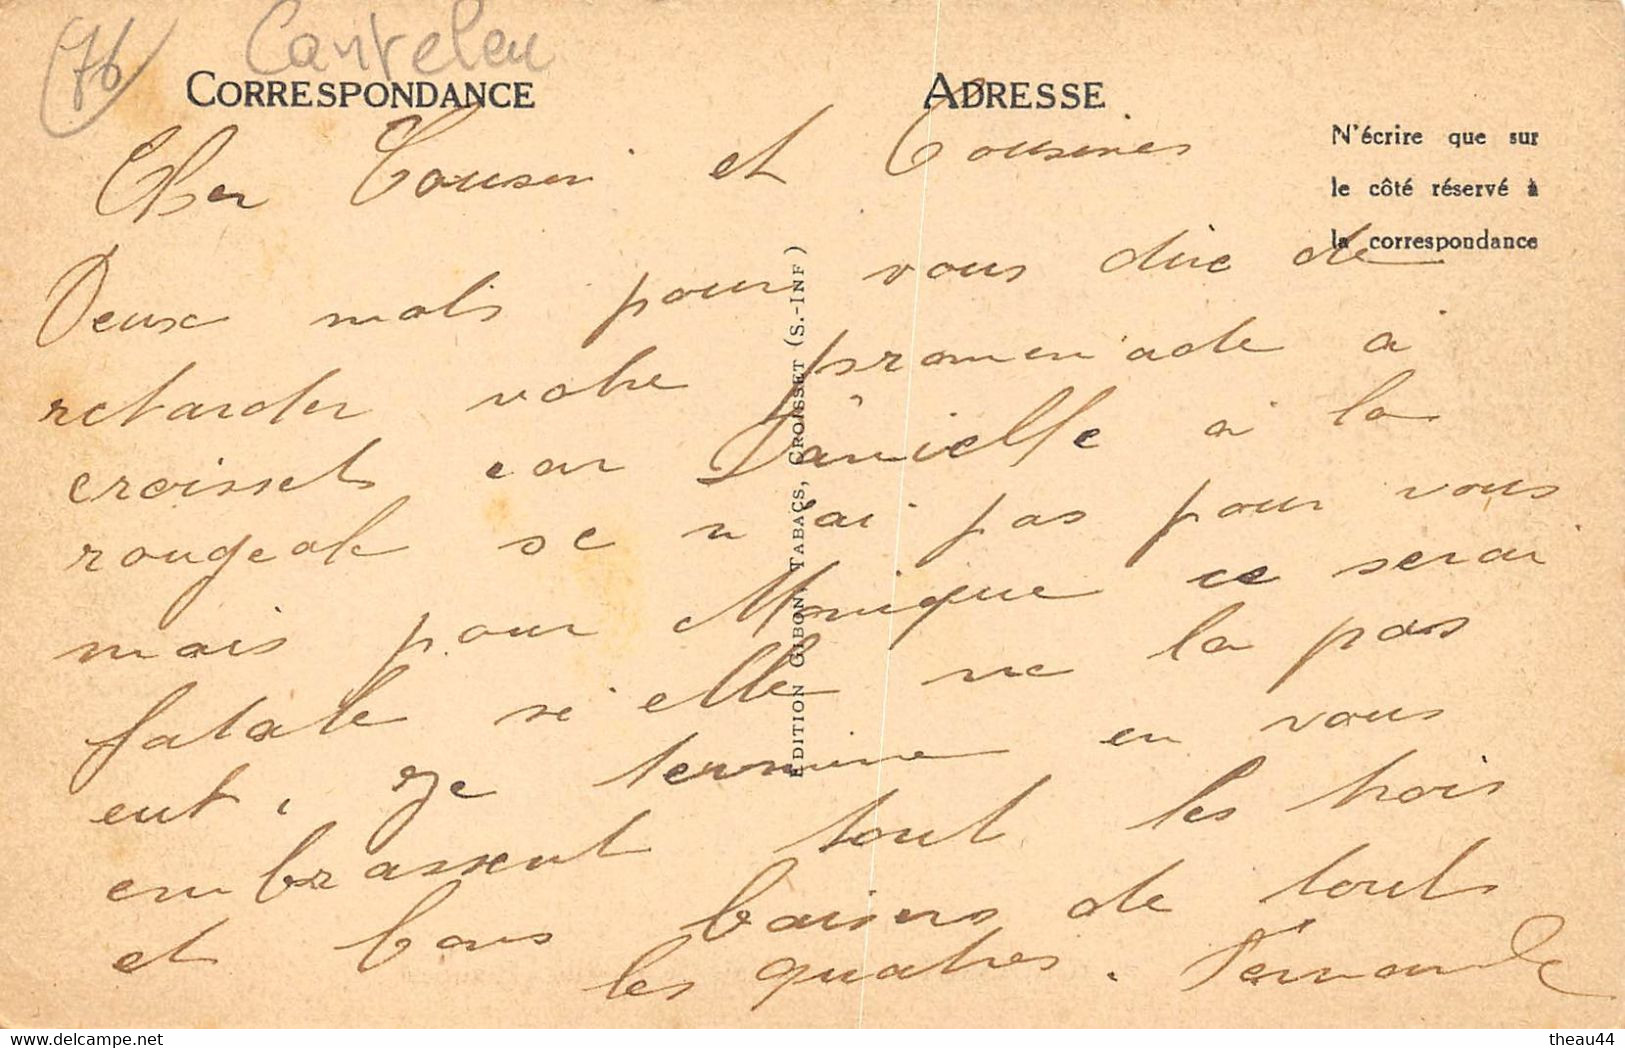 76
Canteleu
CORRESPONDANCE
ADRESSE
N'écrire que sur
le côté réservé à
la correspondance
Cher Cousin et Cousines
Deux mots pour vous dire de
retarder votre promenade à
croisset car Danielle à la
rougeole se n'ai pas pour vous
mais pour Monique ce serai
fatale si elle ne la pas
eut. Je termine en vous
embrassent tout les trois
et bons baisers de touts
les quatres. Fernande
EDITION GIBON, TABACS, CROISSET (S.-INF)
https://www.delcampe.net
theau44